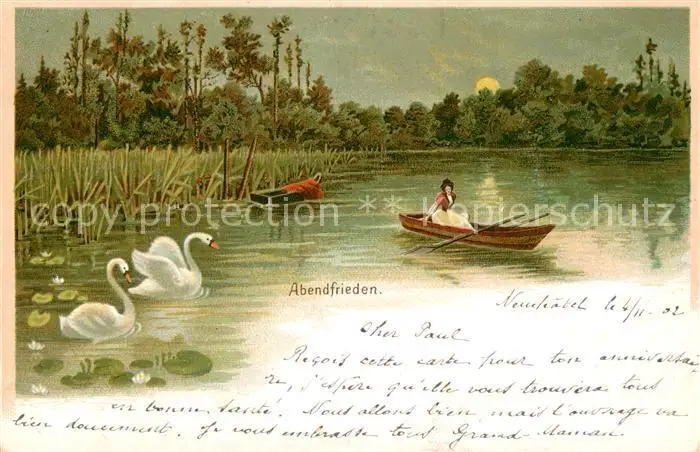 copy protection watermark Kopierschutz
Abendfrieden.
Neuchâtel le 4/II - 02
Cher Paul
Reçois cette carte pour ton anniversai-
re, j'espère qu'elle vous trouvera tous
en bonne santé. Nous allons bien, mais l'ouvrage va
bien doucement. Je vous embrasse tous Grand-Maman.